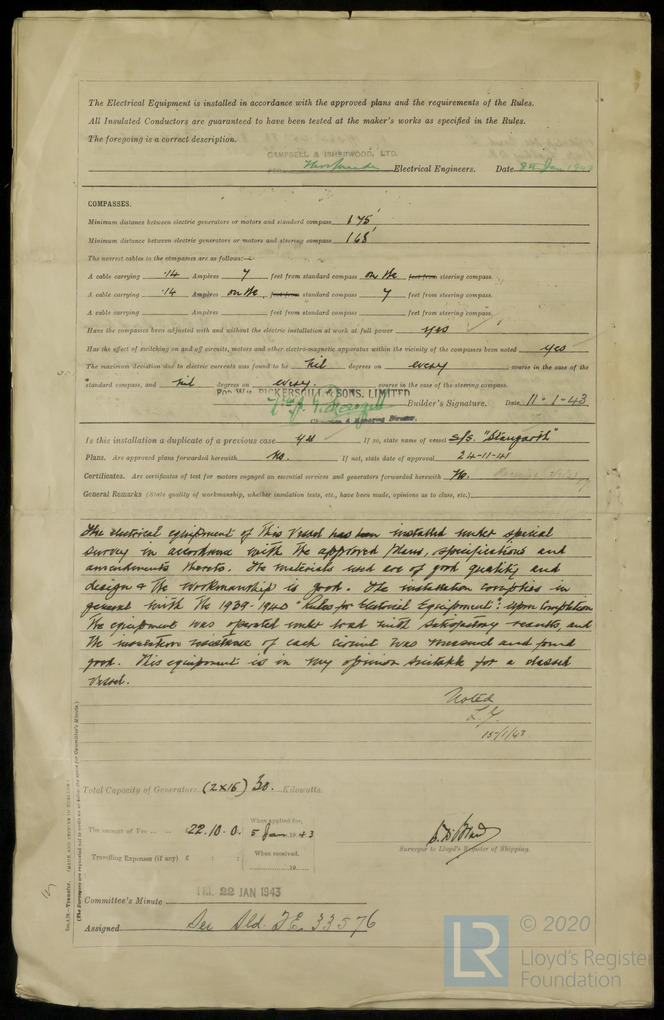 The Electrical Equipment is installed in accordance with the approved plans and the requirements of the Rules.
All Insulated Conductors are guaranteed to have been tested at the maker's works as specified in the Rules.
The foregoing is a correct description.
CAMPBELL & ISHERWOOD, LTD.
Electrical Engineers. Date 8th Jan 1943
COMPASSES.
Minimum distance between electric generators or motors and standard compass 175'
Minimum distance between electric generators or motors and steering compass 168'
The nearest cables to the compasses are as follows:—
A cable carrying .14 Ampères 7 feet from standard compass on the feet from steering compass.
A cable carrying .14 Ampères on the feet from standard compass 7 feet from steering compass.
A cable carrying Ampères feet from standard compass feet from steering compass.
Have the compasses been adjusted with and without the electric installation at work at full power yes
Has the effect of switching on and off circuits, motors and other electro-magnetic apparatus within the vicinity of the compasses been noted yes
The maximum deviation due to electric currents was found to be nil degrees on every course in the case of the
standard compass, and nil degrees on every. course in the case of the steering compass.
For Wm. PICKERSGILL & SONS, LIMITED
Builder's Signature. Date 11-1-43
Chairman & Managing Director.
Is this installation a duplicate of a previous case yes If so, state name of vessel s/s. "Stangarth"
Plans. Are approved plans forwarded herewith No. If not, state date of approval 24-11-41
Certificates. Are certificates of test for motors engaged on essential services and generators forwarded herewith No.
General Remarks (State quality of workmanship, whether insulation tests, etc., have been made, opinions as to class, etc.)
The electrical equipment of this vessel has been installed under special
survey in accordance with the approved plans, specifications and
amendments thereto. The materials used are of good quality and
design & the workmanship is good. The installation complies in
general with the 1939-1940 "Rules for Electrical Equipment". Upon completion
the equipment was operated under load with satisfactory results, and
the insulation resistance of each circuit was measured and found
good. This equipment is in my opinion suitable for a classed
vessel.
Noted
15/1/43
Total Capacity of Generators (2x15) 30. Kilowatts.
The amount of Fee £22.10.0. When applied for, 5 Jan 1943
Travelling Expenses (if any) £ : : When received, 19
Surveyor to Lloyd's Register of Shipping.
Committee's Minute FRI. 22 JAN 1943
Assigned See Sld. F.E. 33576
© 2020
LR
Lloyd's Register
Foundation